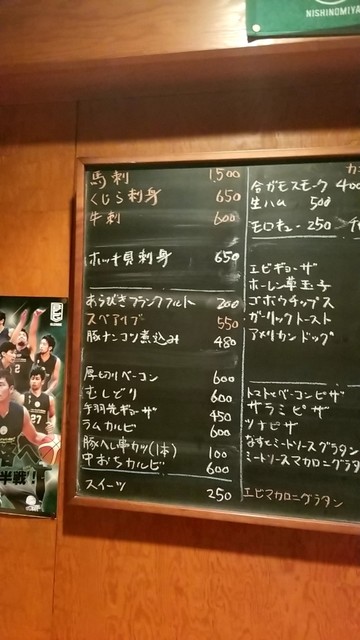 NISHINOMIYA
馬刺 1,500
くじら刺身 650
牛刺 600
ホッキ貝刺身 650
あらびきフランクフルト 200
スペアリブ 550
豚ナンコツ煮込み 480
厚切りベーコン 600
むしどり 600
手羽先ギョーザ 450
ラムカルビ 600
豚へし串カツ(1本) 100
中おちカルビ 600
スイーツ 250
合ガモスモーク 400
生ハム 500
モロキュー 250
エビギョーザ
ホーレン草玉子
ゴボウチップス
ガーリックトースト
アメリカンドッグ
トマトとベーコンピザ
サラミピザ
ツナピザ
なすとミートソースグラタン
ミートソースマカロニグラタ
エビマカロニグラタン
2
27
半戦!!